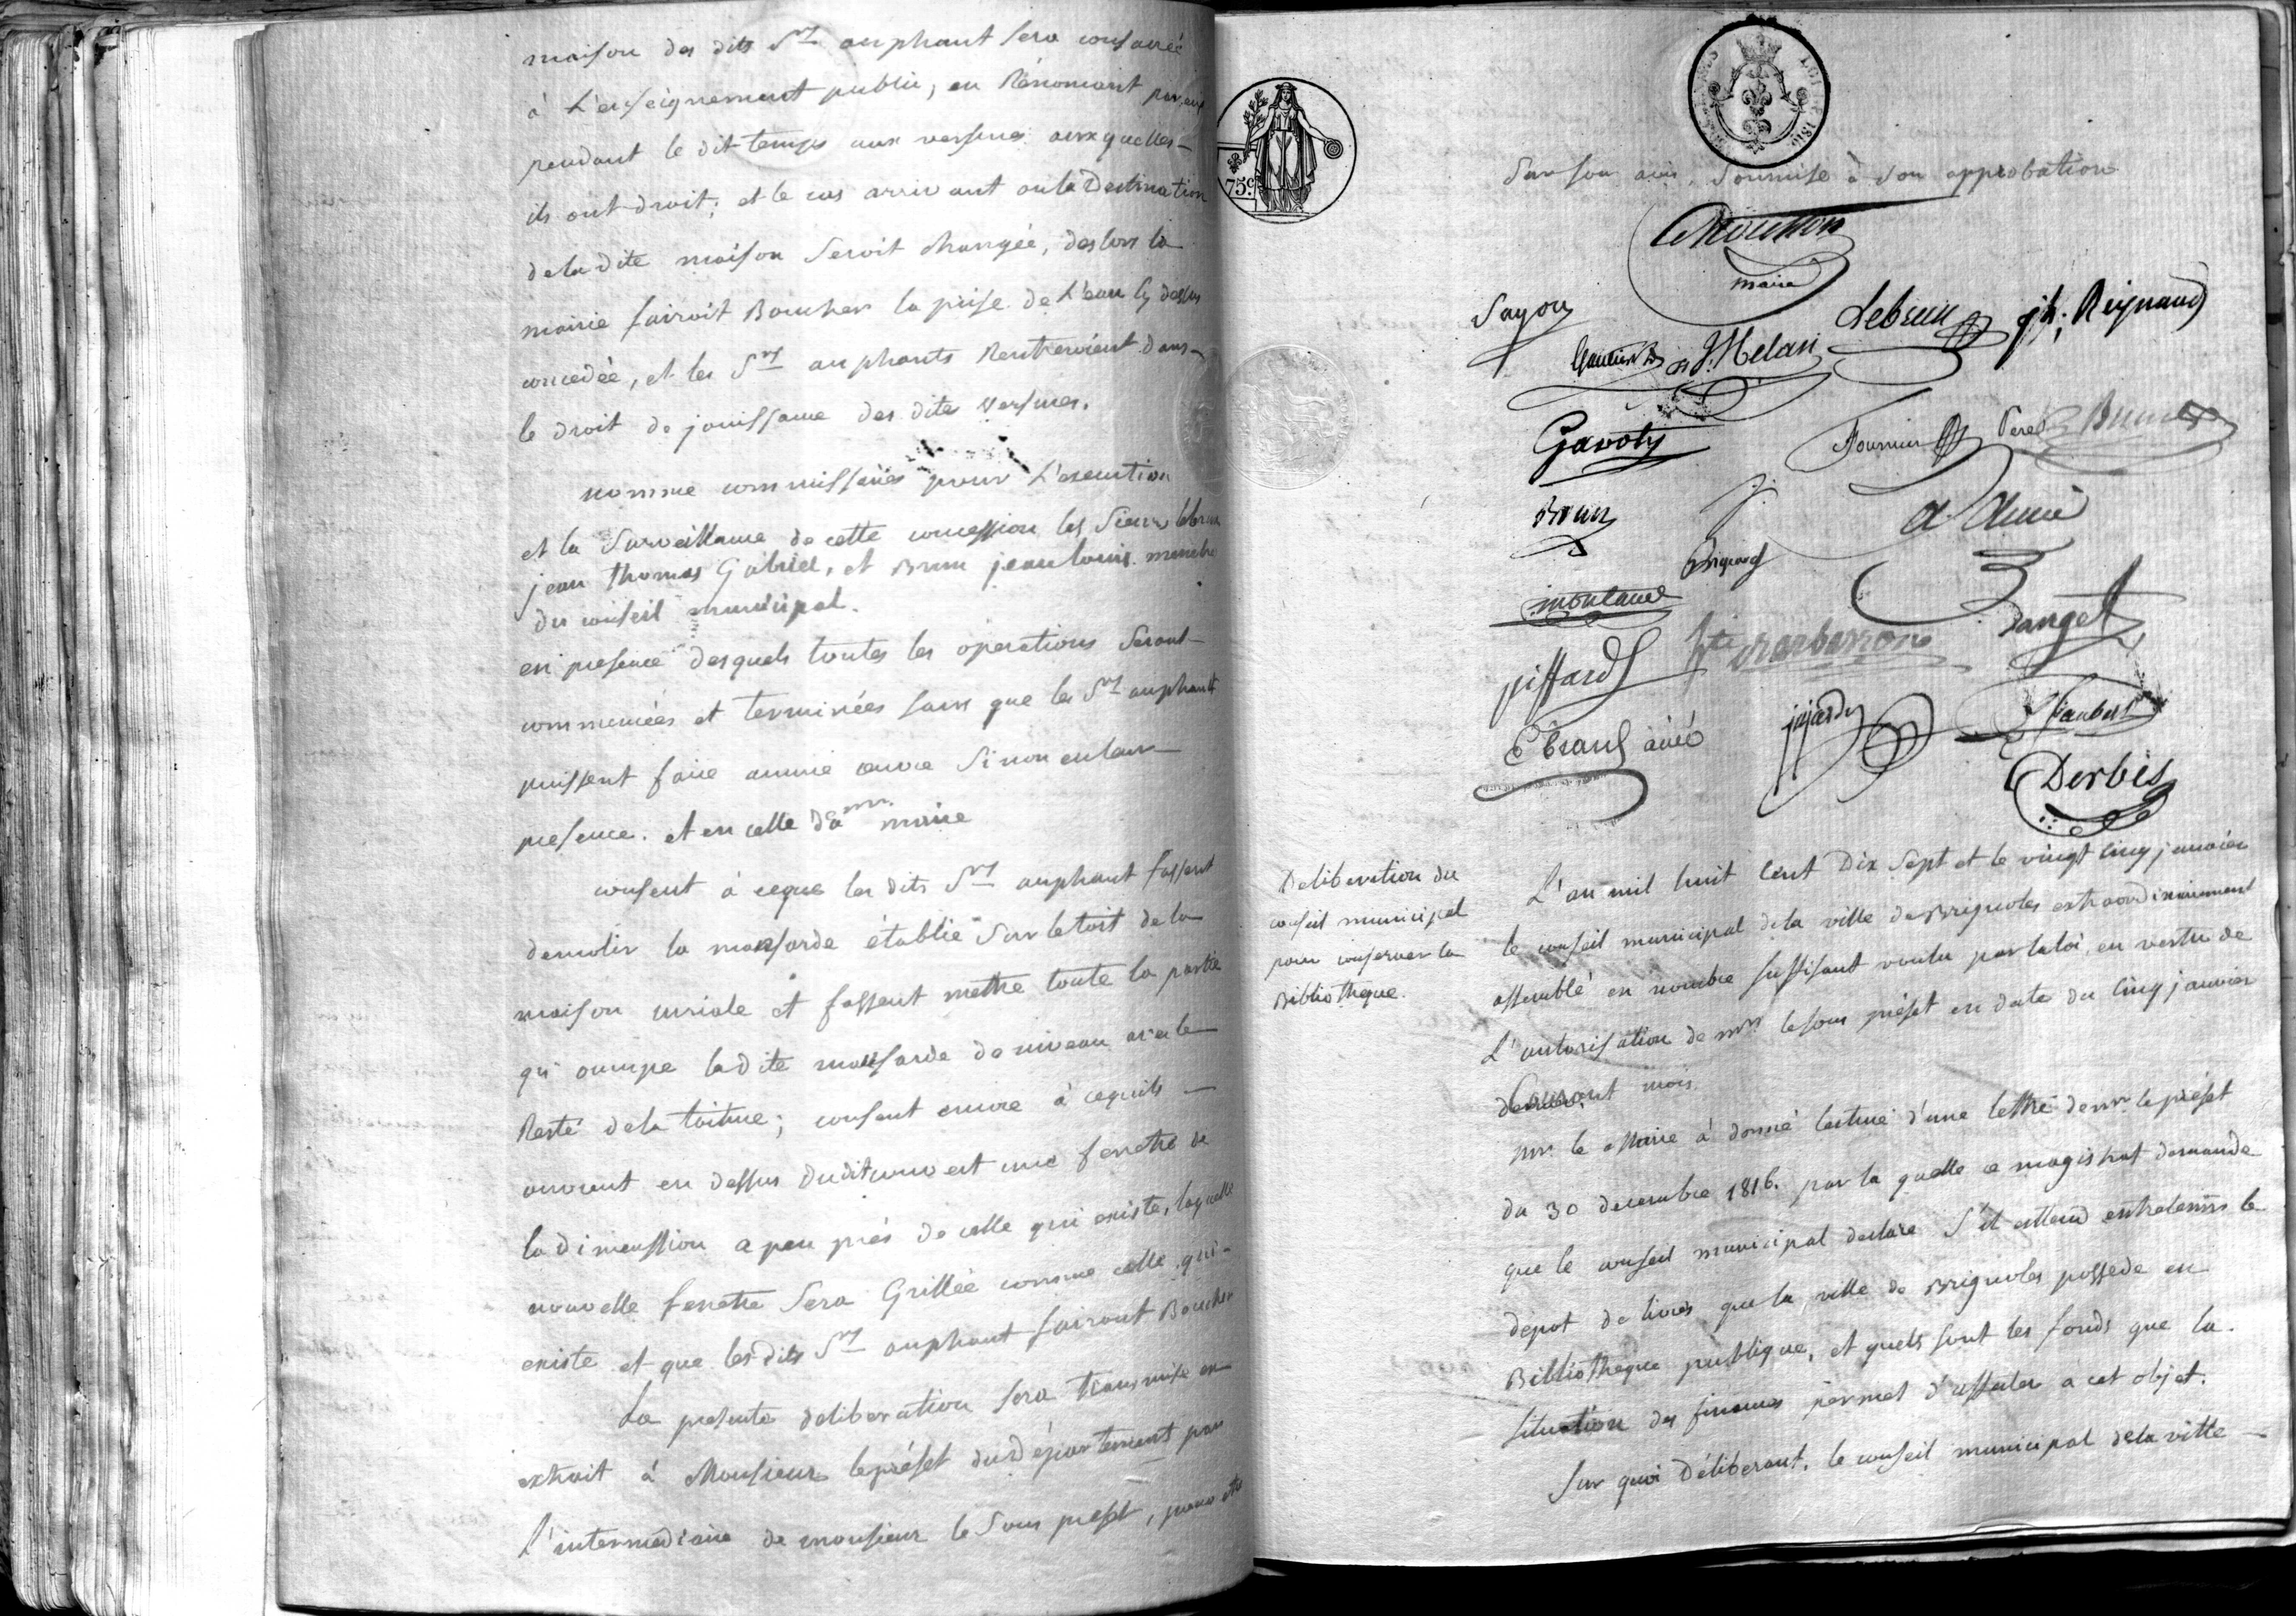 maison des dits Srs auphant sera consacrée
à L'enseignement public, en Rénonçant par eux
pendant le dit temps aux versures auxquelles
ils ont droit; et le cas arrivant ou la Destination
de la dite maison seroit changée, des lors la
mairie fairoit Boucher la prise de L'eau cy dessus
concedée, et les Srs auphants Rentreroient dans
le droit de jouissance des dites versures.
nomme commissaires pour L'execution
et la Surveillance de cette concession les Sieurs lebrun
jean thomas Gabriel, et Brun jean louis membres
du conseil municipal.
en presence desquels toutes les operations seront
commencées et terminées sans que les Srs auphant
puissent faire aucune œuvre Sinon en leur
presence. et en celle de mr. maire
consent à ceque les dits Srs auphant fassent
demolir la mansarde établie Sur le toit de la
maison curiale et fassent mettre toute la partie
qu'occupe ladite mansarde de niveau avec le
Reste de la toiture; consent encore à cequ'ils
ouvrent en dessus dudit couvert une fenetre de
la dimenssion a peu près de celle qui existe, laquelle
nouvelle fenetre Sera Grillée comme celle qui
existe et que lesdits Srs auphant fairont Boucher
La presente deliberation sera transmise en
extrait à Monsieur le préfet du département par
L'intermédiaire de monsieur le Sous prefet, pour etre
75c
LOI DE 1816
Sur son avis, Soumise à son approbation
Mouttон
maire
Sayou
Lebrun
jh: Reynaud
J. Melan
Gavoty
Fournier
Pere
Brunet
Brun
montaud
piffard
Barbarroux
Danget
Ebrard ainé
jujardy
Jaubert
Derbes
Deliberation du
conseil municipal
pour conserver la
Bibliotheque.
L'an mil huit Cent Dix Sept et le vingt Cinq janvier
le conseil municipal de la ville de Brignoles extraordinairement
assemblé en nombre suffisant voulu par la loi, en vertu de
L'autorisation de mr. le sous préfet en date du Cinq janvier
Courant mois.
mr. le Maire à donné lecture d'une lettre de mr. le préfet
du 30 decembre 1816. par la quelle ce magistrat demande
que le conseil municipal declare S'il entend entretenir le
depot de livres que la ville de Brignoles possede en
Bibliotheque publique, et quels sont les fonds que la
Situation des finances permet d'affecter à cet objet.
Sur quoi Déliberant, le conseil municipal de la ville